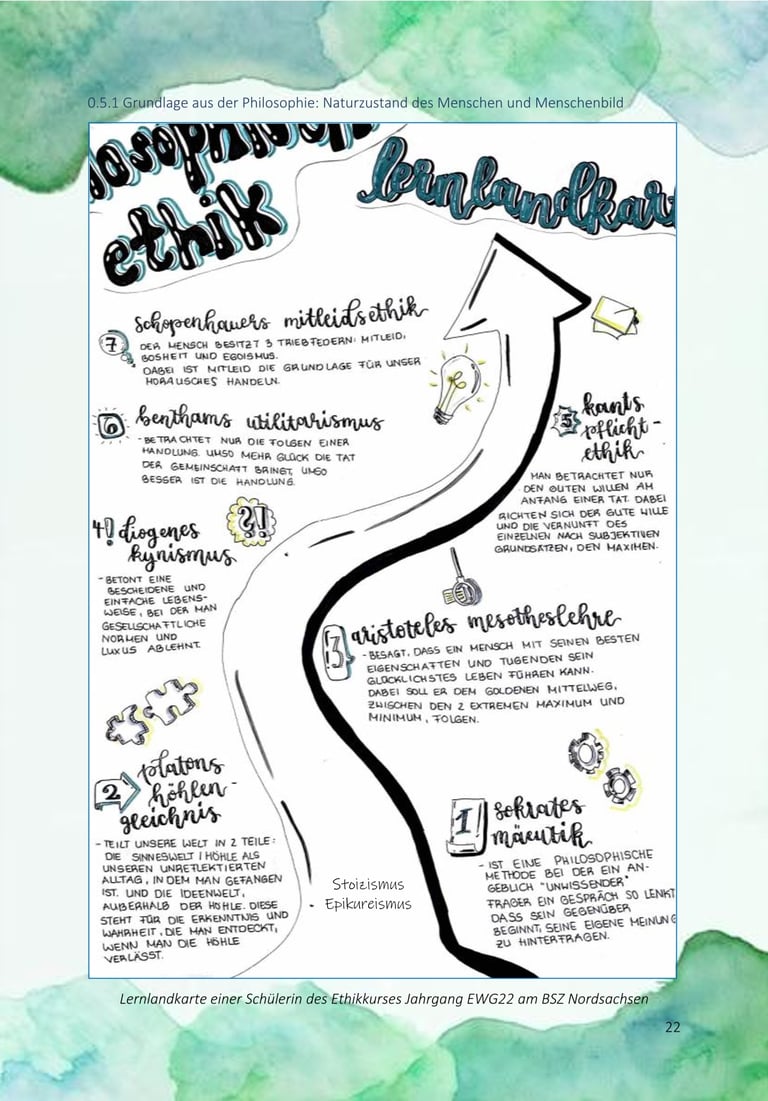 0.5.1 Grundlage aus der Philosophie: Naturzustand des Menschen und Menschenbild
ethik
lernlandkar
7
schopenhauers mitleidsethik
DER MENSCH BESITZT 3 TRIEBFEDERN: MITLEID,
BOSHEIT UND EGOISMUS.
DABEI IST MITLEID DIE GRUNDLAGE FÜR UNSER
MORALISCHES HANDELN.
6
benthams utilitarismus
- BETRACHTET NUR DIE FOLGEN EINER
HANDLUNG. UMSO MEHR GLÜCK DIE TAT
DER GEMEINSCHAFT BRINGT, UMSO
BESSER IST DIE HANDLUNG.
5
kants
pflicht-
ethik
MAN BETRACHTET NUR
DEN GUTEN WILLEN AM
ANFANG EINER TAT. DABEI
RICHTEN SICH DER GUTE WILLE
UND DIE VERNUNFT DES
EINZELNEN NACH SUBJEKTIVEN
GRUNDSÄTZEN, DEN MAXIMEN.
?!
4! diogenes
kynismus
- BETONT EINE
BESCHEIDENE UND
EINFACHE LEBENS-
WEISE, BEI DER MAN
GESELLSCHAFTLICHE
NORMEN UND
LUXUS ABLEHNT.
3
aristoteles mesotheslehre
- BESAGT, DASS EIN MENSCH MIT SEINEN BESTEN
EIGENSCHAFTEN UND TUGENDEN SEIN
GLÜCKLICHSTES LEBEN FÜHREN KANN.
DABEI SOLL ER DEM GOLDENEN MITTELWEG,
ZWISCHEN DEN 2 EXTREMEN MAXIMUM UND
MINIMUM, FOLGEN.
2
platons
höhlen-
gleichnis
- TEILT UNSERE WELT IN 2 TEILE:
DIE SINNESWELT / HÖHLE ALS
UNSEREN UNREFLEKTIERTEN
ALLTAG, IN DEM MAN GEFANGEN
IST. UND DIE IDEENWELT,
AUßERHALB DER HÖHLE. DIESE
STEHT FÜR DIE ERKENNTNIS UND
WAHRHEIT, DIE MAN ENTDECKT,
WENN MAN DIE HÖHLE
VERLÄSST.
1
sokrates
mäeutik
- IST EINE PHILOSOPHISCHE
METHODE BEI DER EIN AN-
GEBLICH "UNWISSENDER"
FRAGER EIN GESPRÄCH SO LENKT
DASS SEIN GEGENÜBER
BEGINNT, SEINE EIGENE MEINUNG
ZU HINTERFRAGEN.
Stoizismus
• Epikureismus
Lernlandkarte einer Schülerin des Ethikkurses Jahrgang EWG22 am BSZ Nordsachsen
22